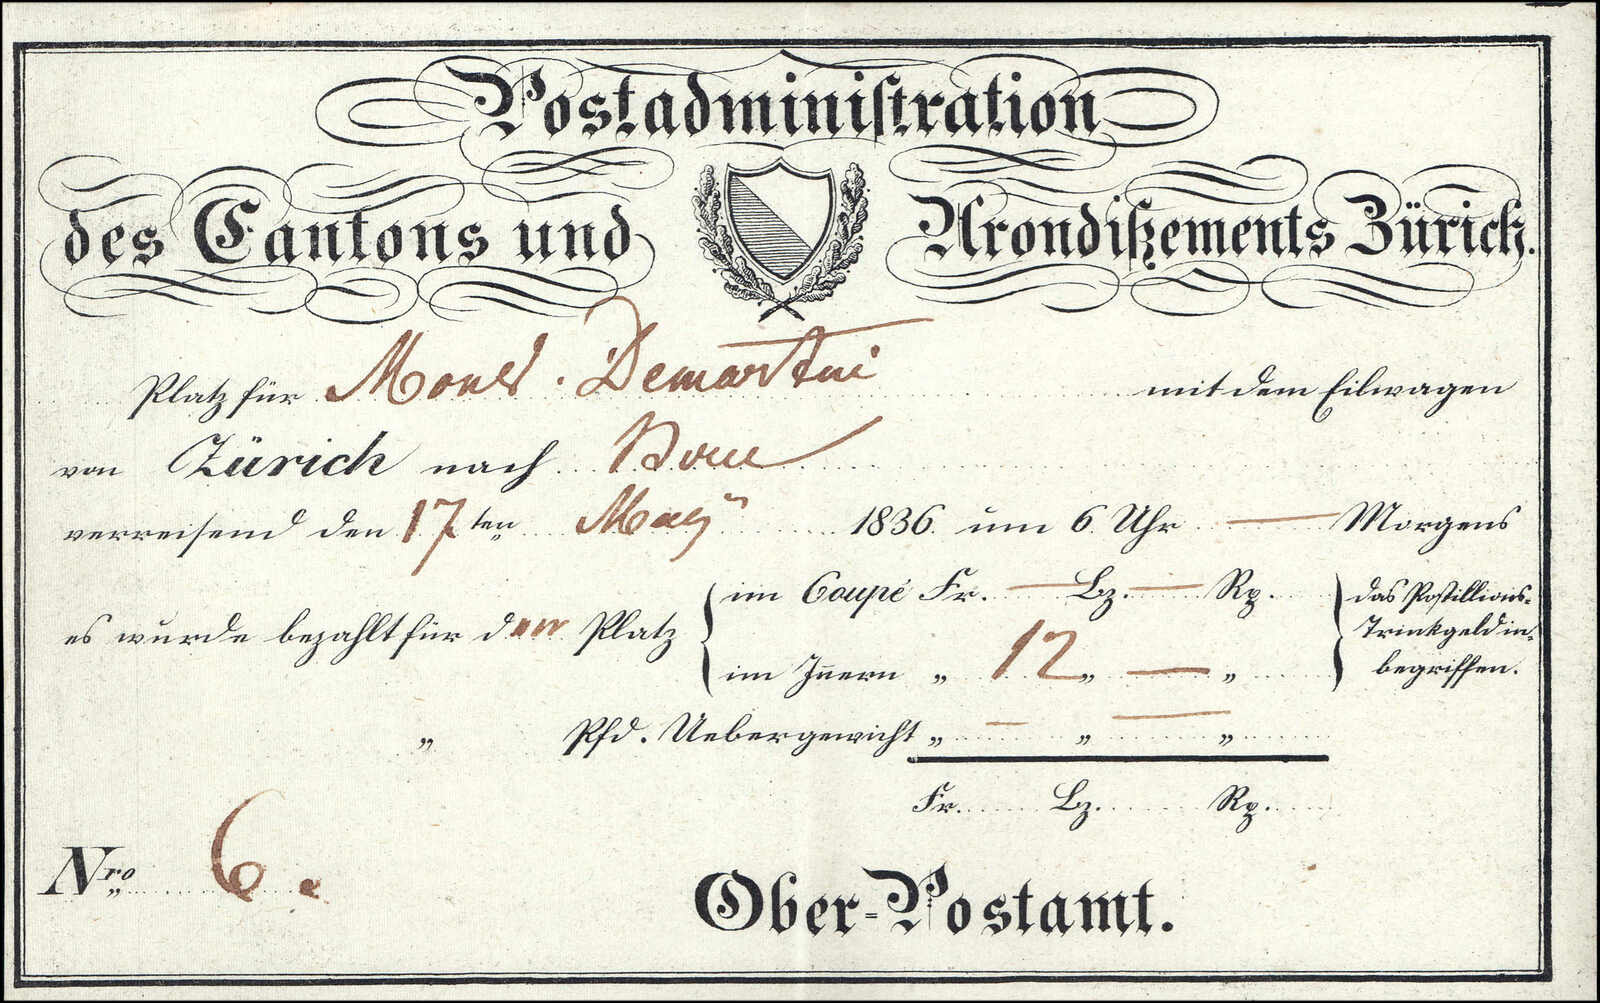 Postadministration
des Cantons und Arondißements Zürich.
Platz für Monsr. Demartini mit dem Eilwagen
von Zürich nach Bern
verreisend den 17ten May 1836. um 6. Uhr — Morgens
es wurde bezahlt für den Platz
im Coupé Fr. — Bz. — Rp.
im Innern „ 12 „ — „
das Postillions-
Trinkgeld in-
begriffen.
„ Pfd. Uebergewicht „ — „ — „
Fr. Bz. Rp.
Nro 6.
Ober-Postamt.